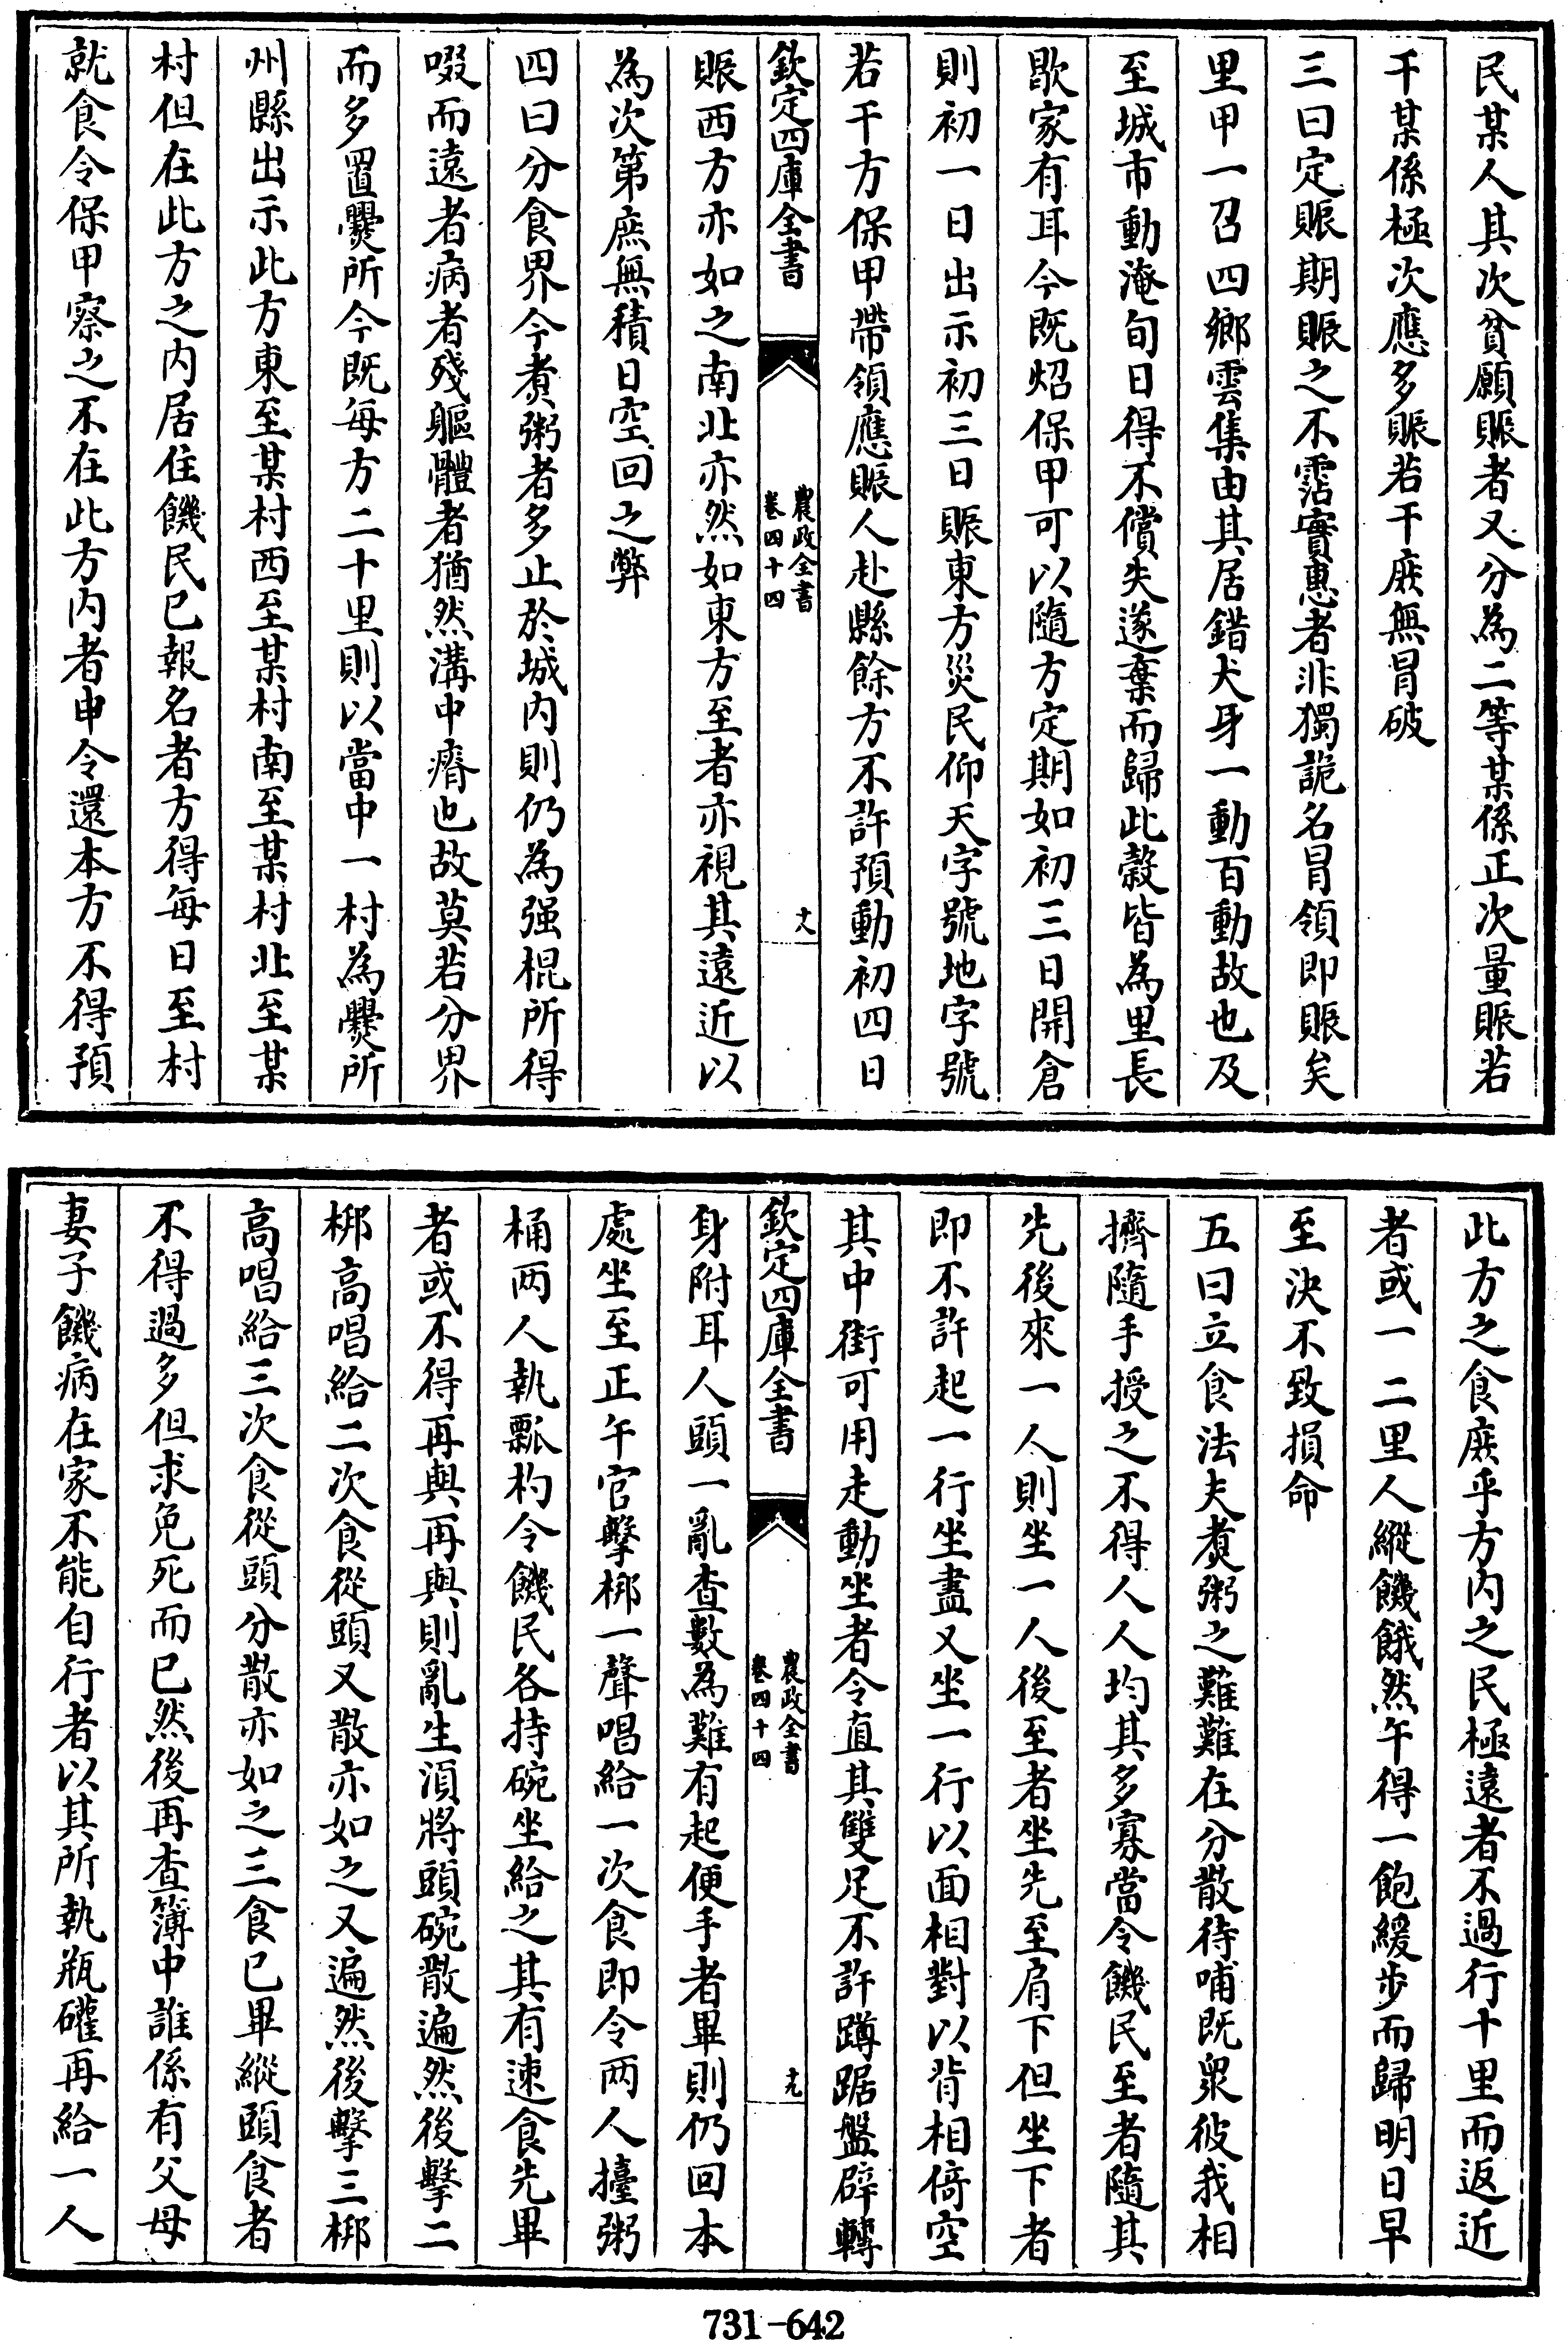 民某人其次貧願賑者又分為二等某係正次量賑若
干某係極次應多賑若干庶無冒破
三曰定賑期賑之不霑實惠者非獨詭名冒領即賑矣
里甲一召四鄉雲集由其居錯犬牙一動百動故也及
至城市動淹旬日得不償失遂棄而歸此穀皆為里長
歇家有耳今既炤保甲可以隨方定期如初三日開倉
則初一日出示初三日賑東方災民仰天字號地字號
若干方保甲帶領應賑人赴縣餘方不許預動初四日
欽定四庫全書
農政全書
卷四十四
十八
賑西方亦如之南北亦然如東方至者亦視其遠近以
為次第庶無積日空回之弊
四曰分食界今煮粥者多止於城内則仍為强棍所得
啜而遠者病者殘軀體者猶然溝中瘠也故莫若分界
而多置爨所今既每方二十里則以當中一村為爨所
州縣出示此方東至某村西至某村南至某村北至某
村但在此方之内居住饑民已報名者方得每日至村
就食令保甲察之不在此方内者申令還本方不得預
此方之食庶乎方内之民極遠者不過行十里而返近
者或一二里人縱饑餓然午得一飽緩步而歸明日早
至決不致損命
五曰立食法夫煮粥之難難在分散待哺既衆彼我相
擠隨手授之不得人人均其多寡當令饑民至者隨其
先後來一人則坐一人後至者坐先至肩下但坐下者
即不許起一行坐盡又坐一行以面相對以背相倚空
其中街可用走動坐者令直其雙足不許蹲踞盤辟轉
欽定四庫全書
農政全書
卷四十四
十九
身附耳人頭一亂查數為難有起便手者畢則仍回本
處坐至正午官擊梆一聲唱給一次食即令两人擡粥
桶两人執瓢杓令饑民各持碗坐給之其有速食先畢
者或不得再與再與則亂生須將頭碗散遍然後擊二
梆高唱給二次食從頭又散亦如之又遍然後擊三梆
高唱給三次食從頭分散亦如之三食已畢縱頭食者
不得過多但求免死而已然後再查簿中誰係有父母
妻子饑病在家不能自行者以其所執瓶礶再給一人
731-642